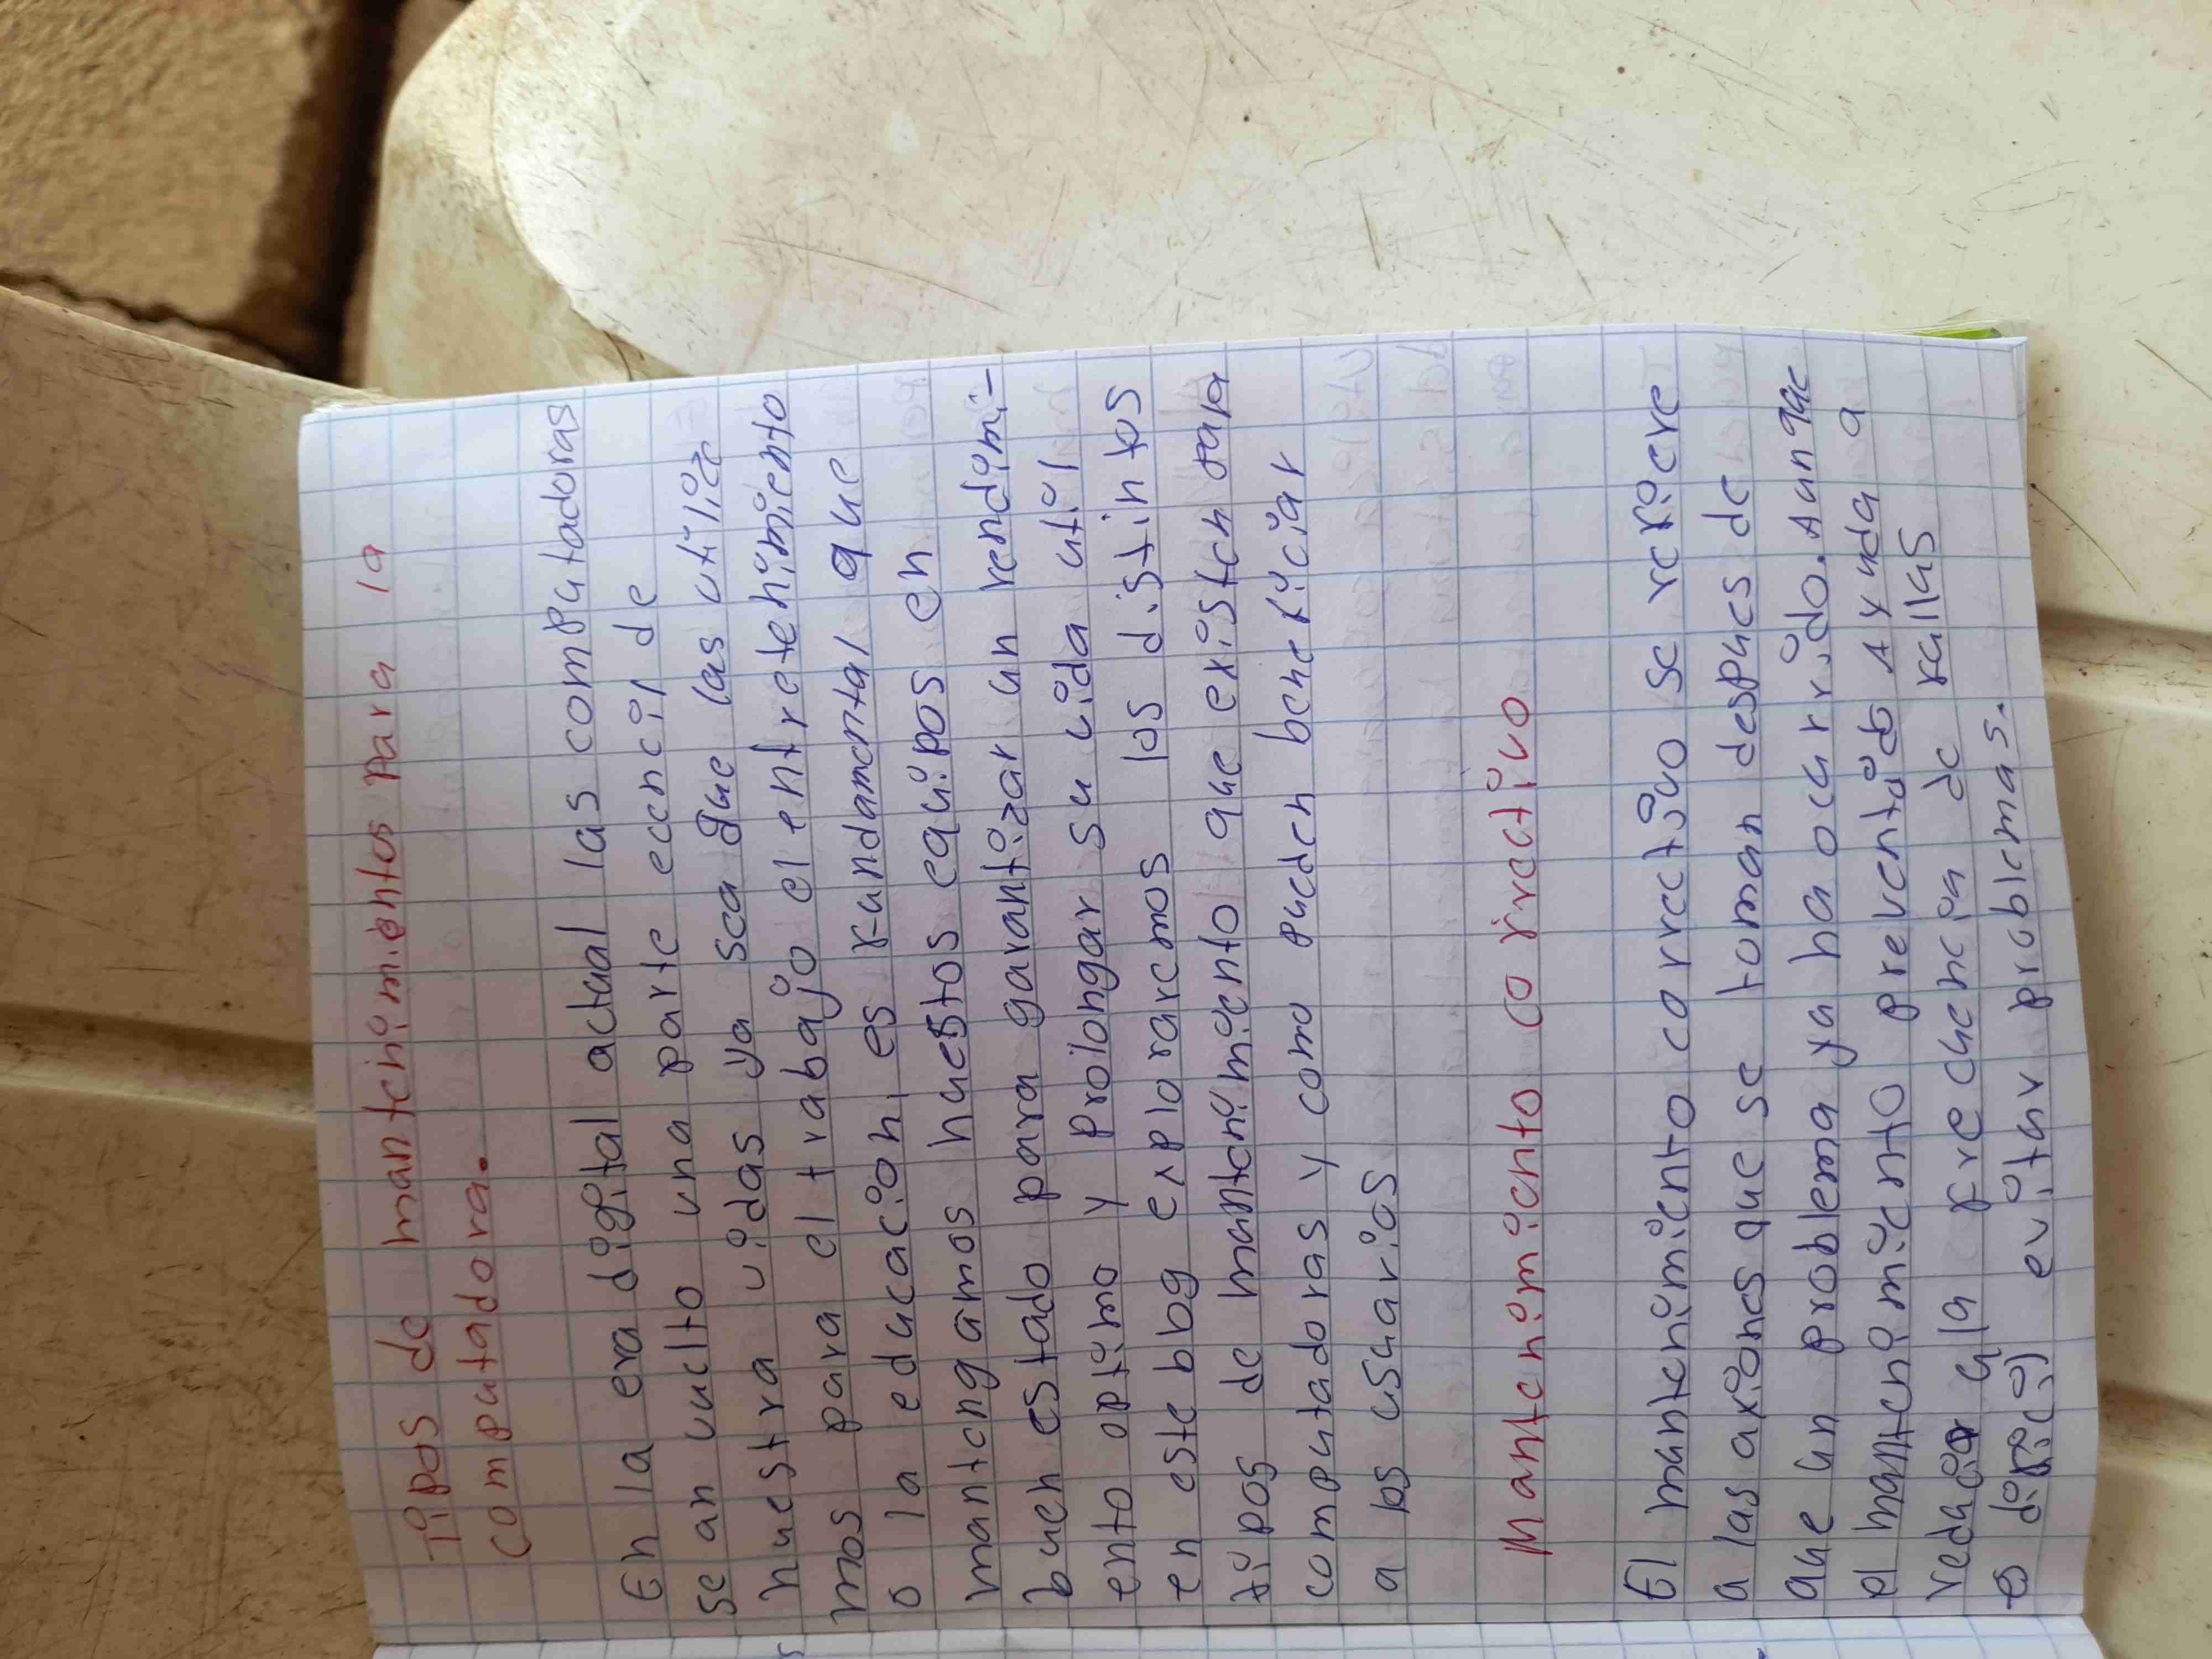 Tipos de mantenimientos para la
computadora.
En la era digital actual las computadoras
se an vuelto una parte ecencil de
nuestra vidas ya sea que las utilice
mos para el trabajo el entretenimiento
o la educacion, es fundamental que
mantengamos nuestos equipos en
buen estado para garantizar un rendimi-
ento optimo y prolongar su vida util
en este blog exploraremos los distintos
tipos de mantenimiento que existen para
computadoras y como pueden beneficiar
a los usuarios
Mantenimiento correctivo
El mantenimiento correctivo se refiere
a las axiones que se toman despues de
que un problema ya ha ocurrido. Aunque
el mantenimiento preventido Ayuda a
reducir la frecuencia de fallas
es dificil evitar problemas.